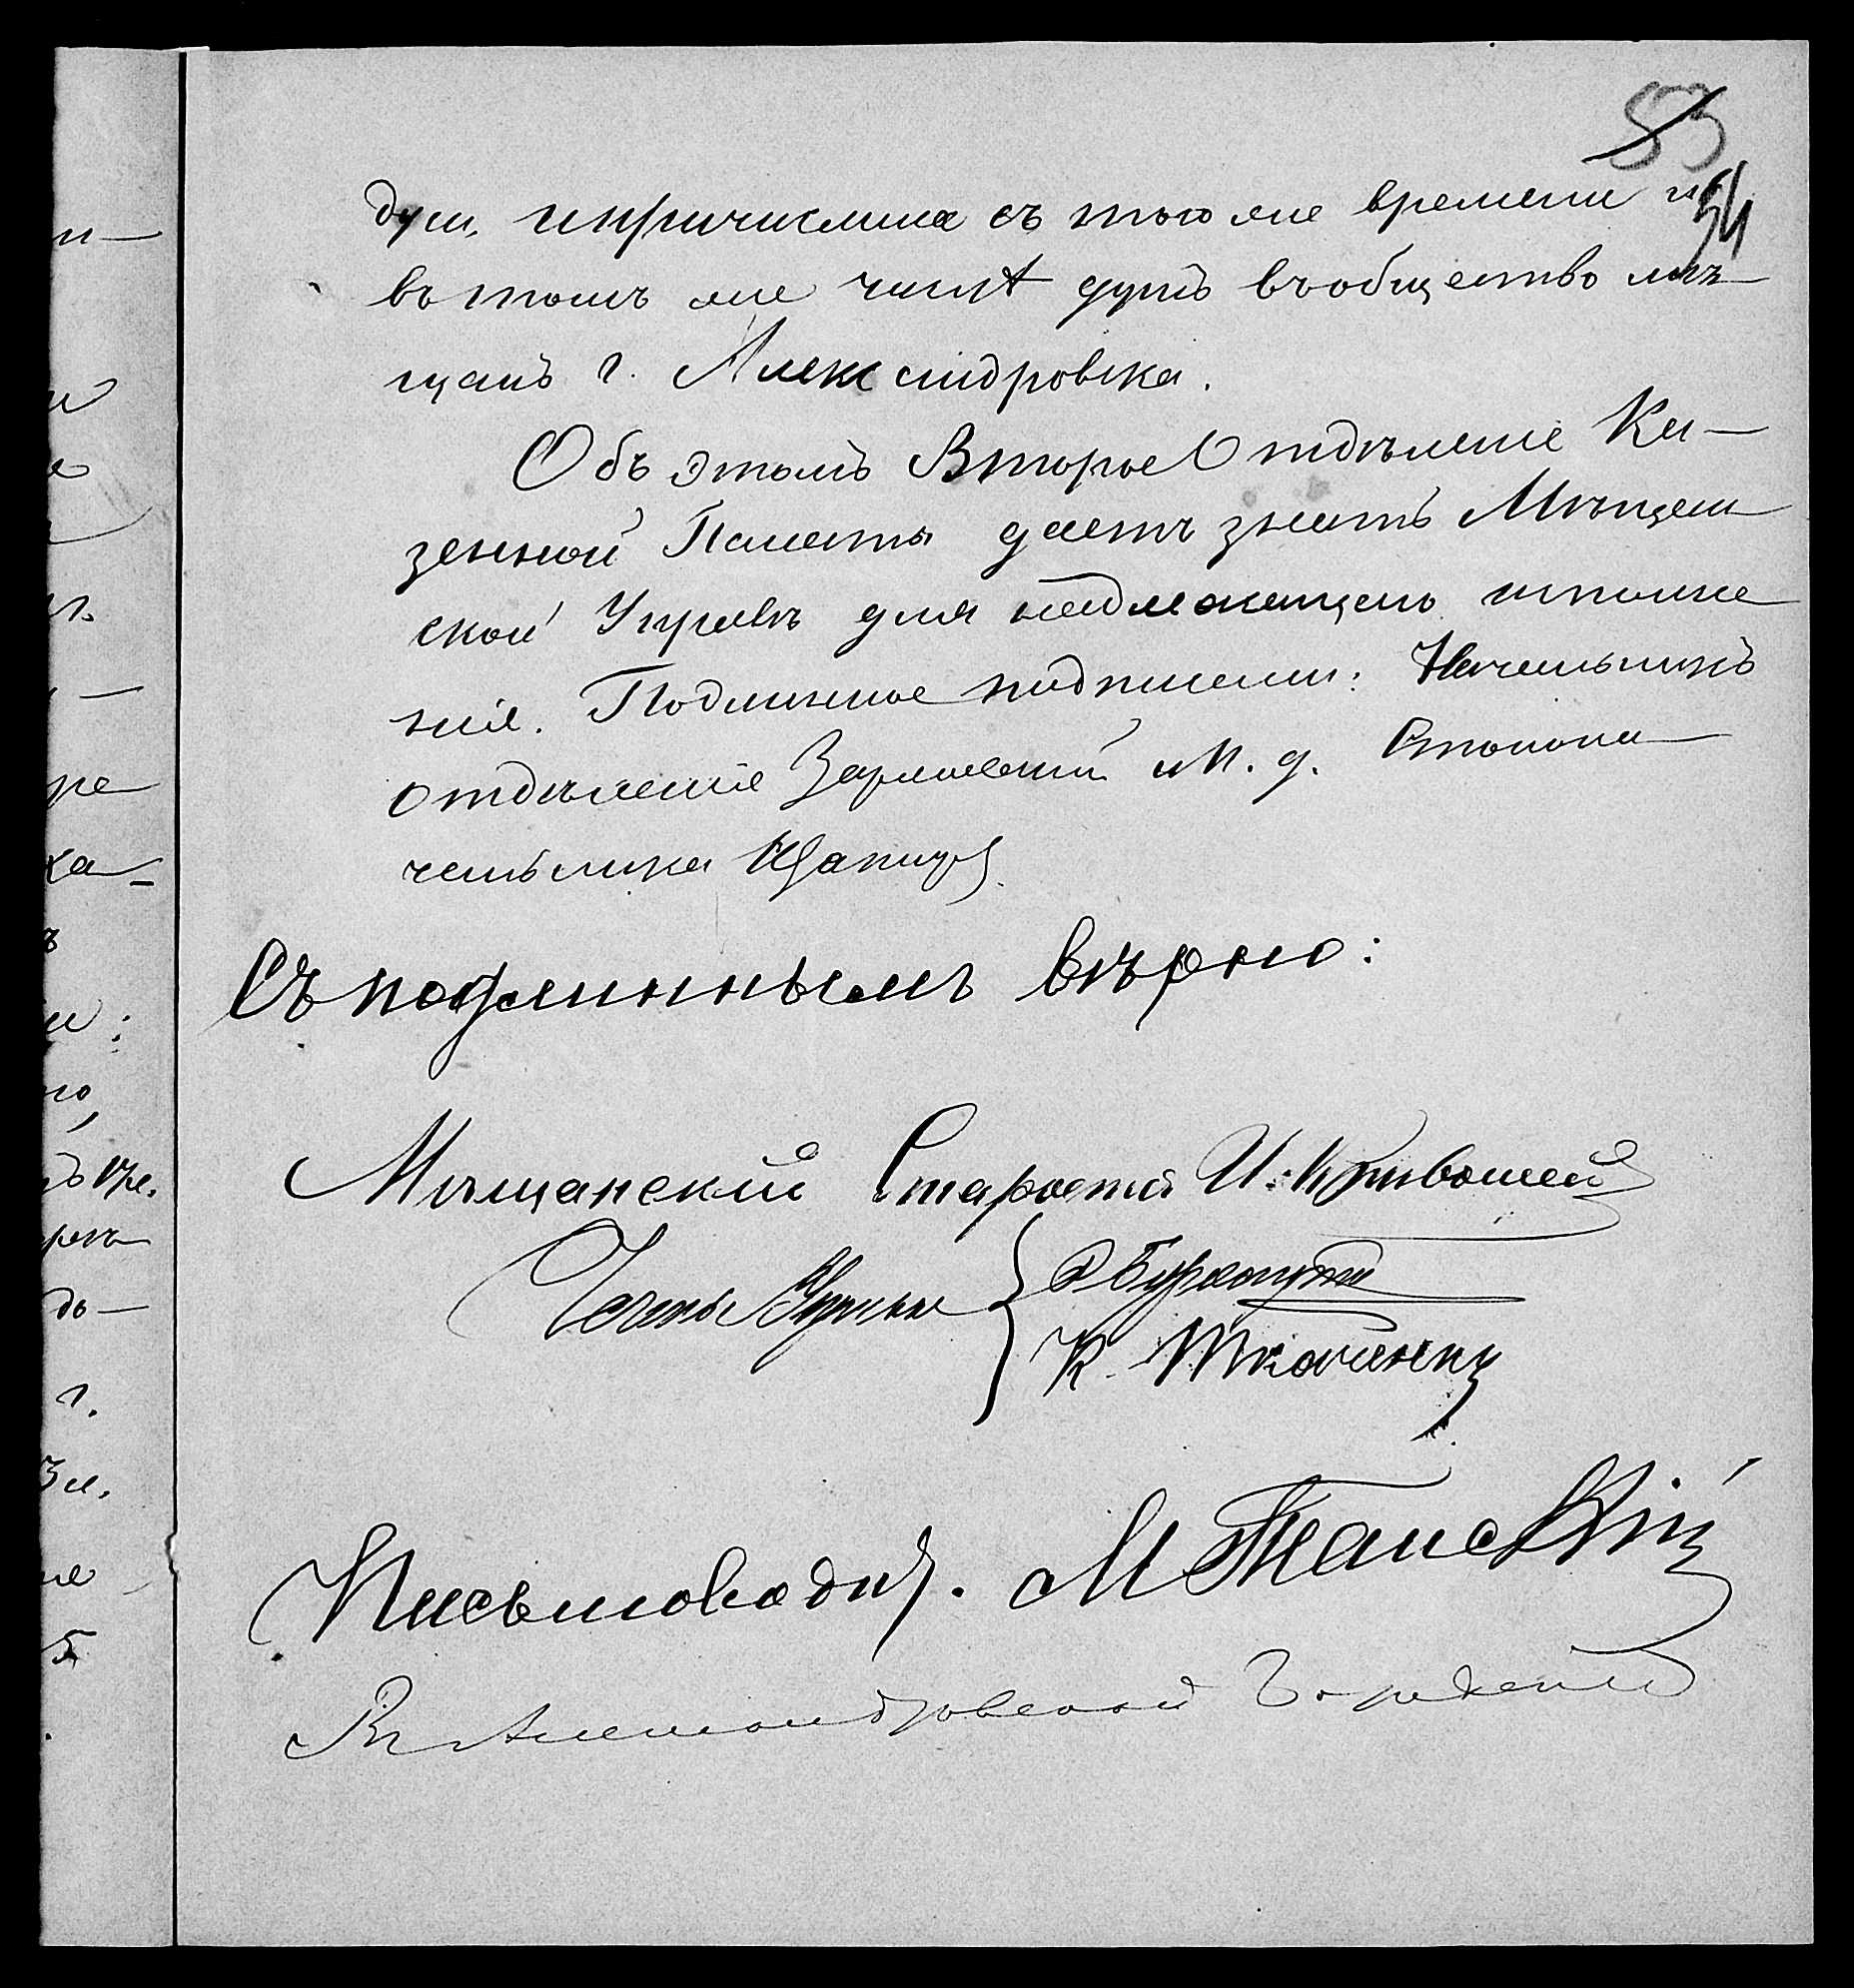 53
54
душ, и причислила съ того же времени и
въ томъ же числѣ душъ въ общество мѣ-
щанъ г. Александровска.
Объ этомъ Второе Отдѣленіе Ка-
зенной Палаты даетъ знать Мѣщан-
ской Управѣ для надлежащаго исполне-
нія. Подлинное подписали: Начальникъ
отдѣленія и м. д. Столона-
чальника
Съ подлиннымъ вѣрно:
Мѣщанскій Староста И. Кривошей
Члены Управы
К. Ткаченко
Письмоводит. М Танскій
Въ Александровской